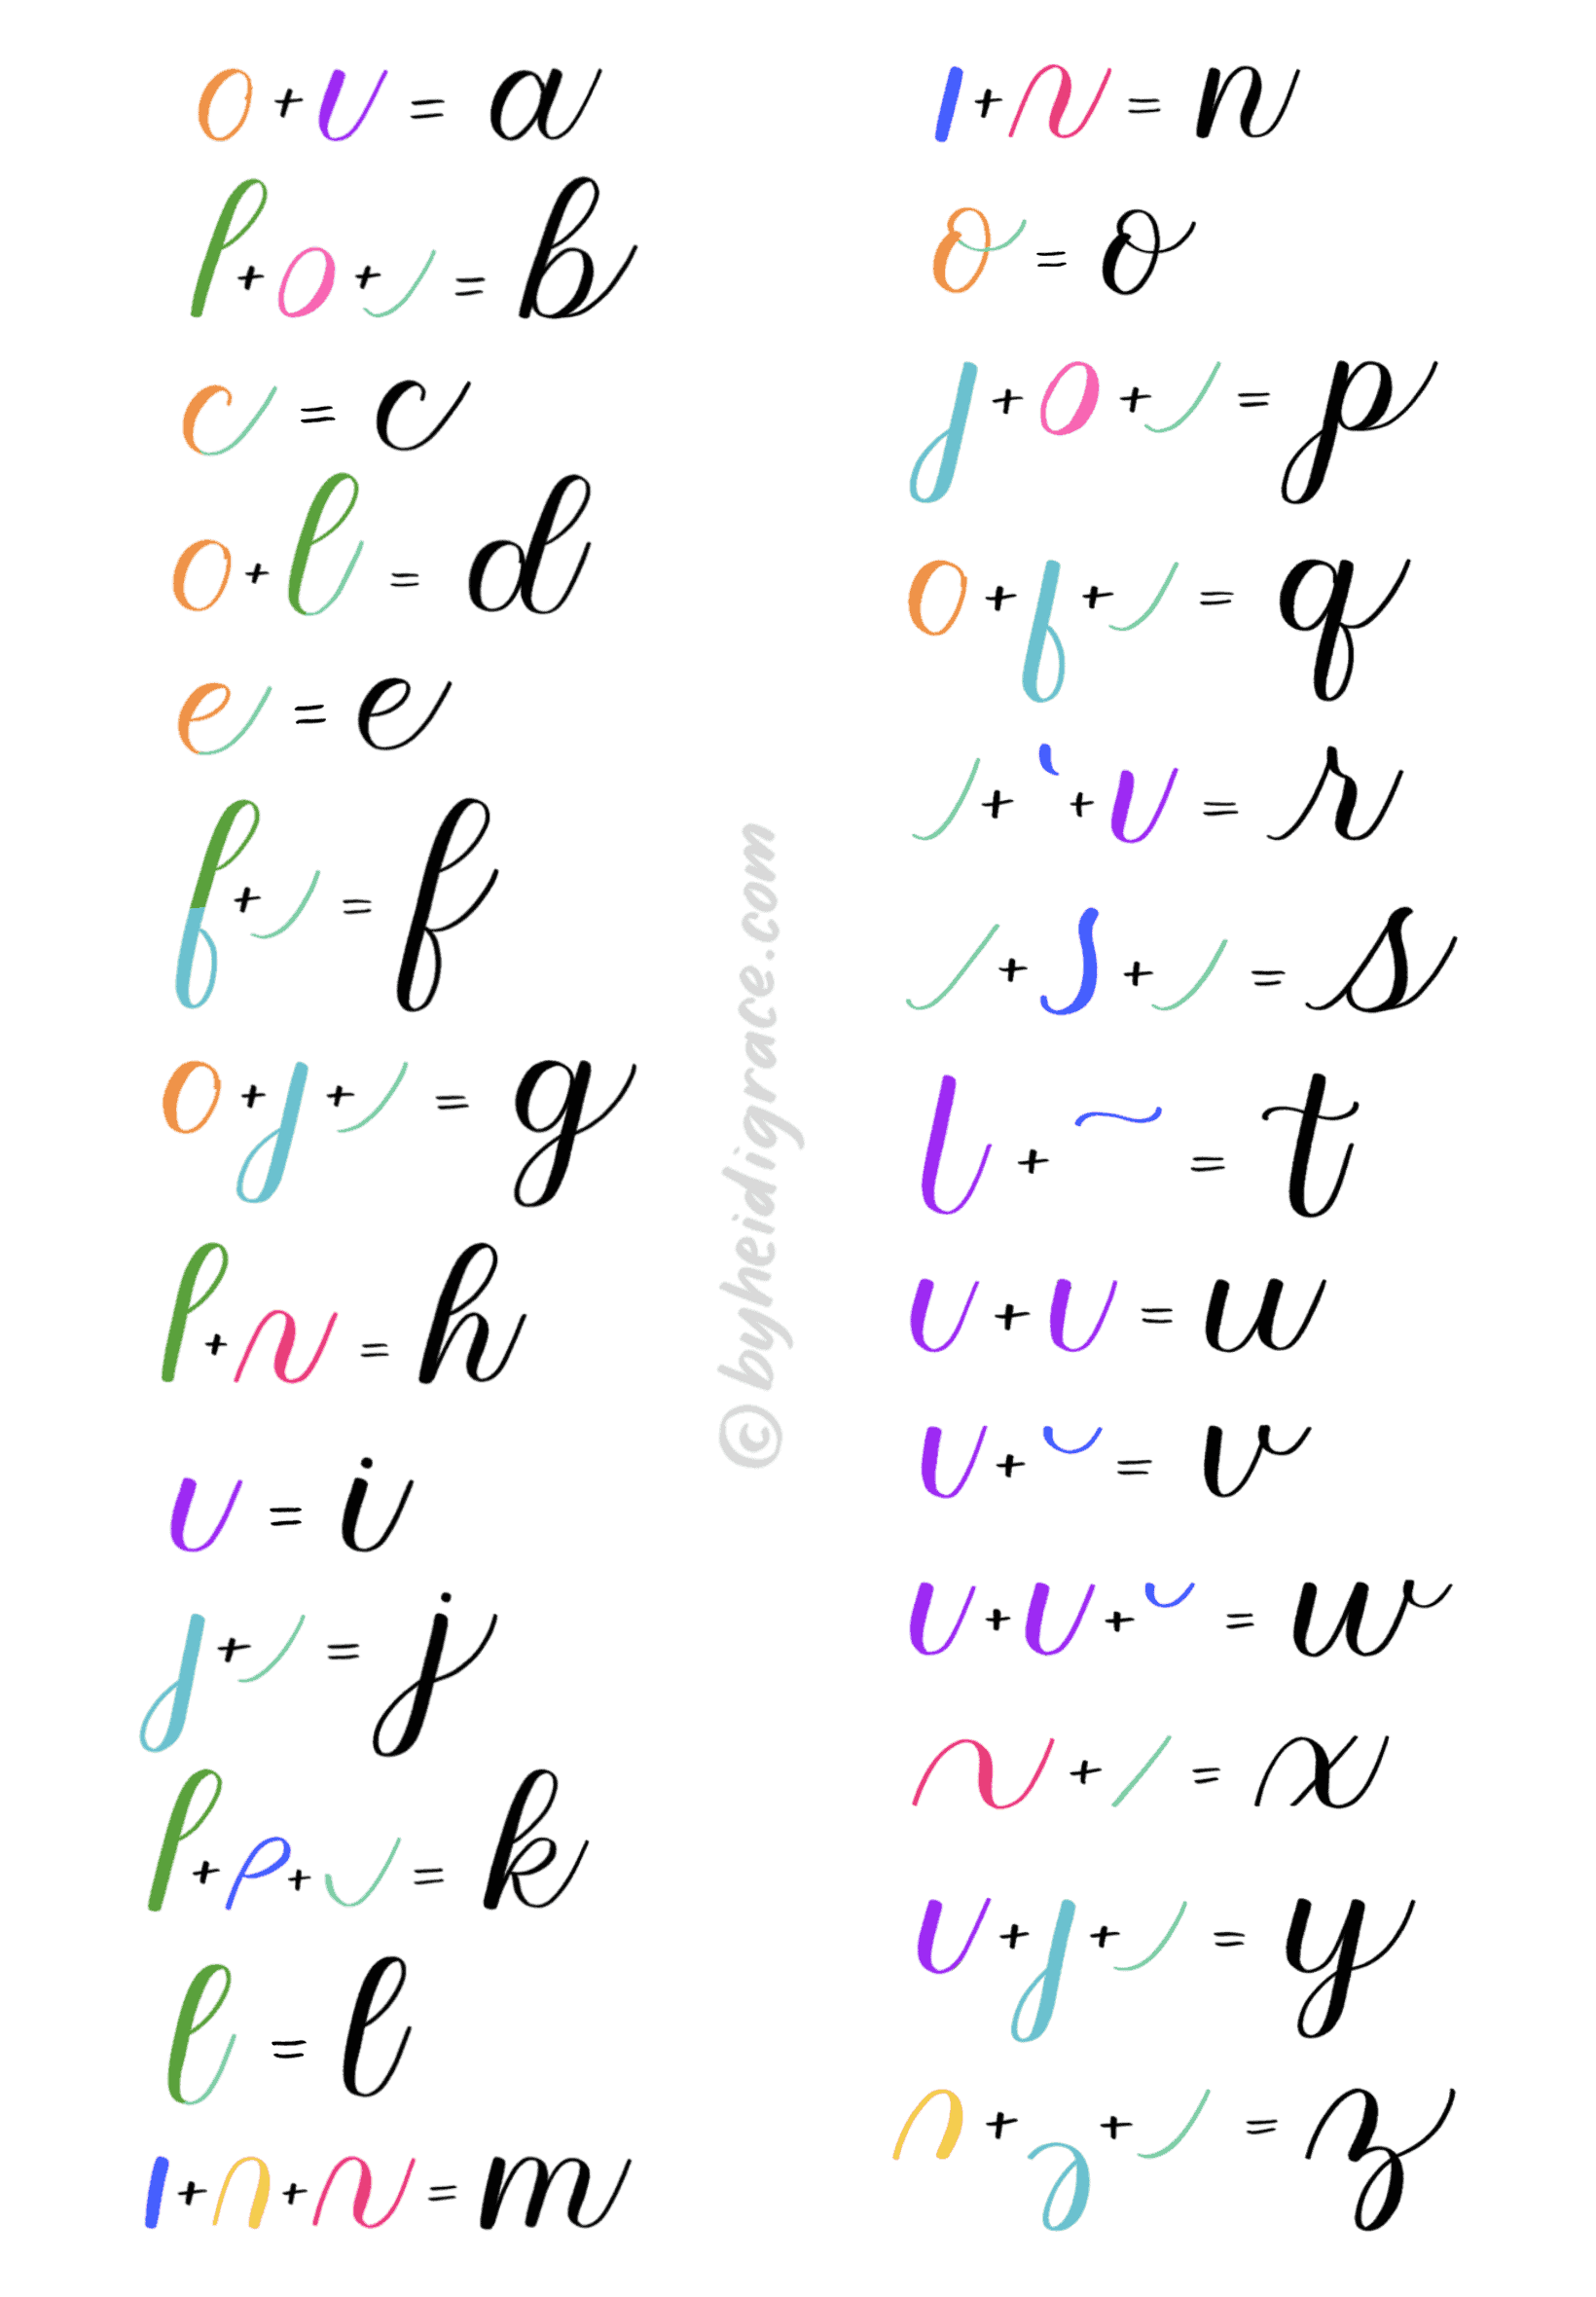 o + ι = a
l + o + ι = b
c = c
o + l = d
e = e
f + ι = f
o + j + ι = g
l + n = h
ι = i
j + ι = j
l + ρ + ι = k
l = l
ı + n + n = m
ı + n = n
o = o
j + o + ι = p
o + f + ι = q
ι + ` + ι = r
ι + ſ + ι = s
l + ~ = t
ι + ι = u
ι + ˘ = v
ι + ι + ˘ = w
n + / = x
ι + j + ι = y
n + ʒ + ι = z
© byheidigrace.com